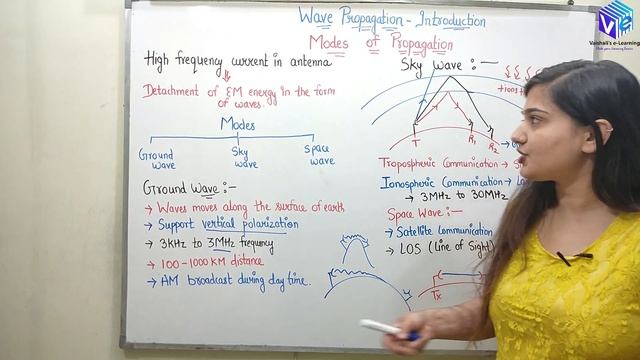 Wave Propagation - Introduction
Modes of Propagation
High frequency current in antenna
Detachment of EM energy in the form
of waves.
Modes
Ground
wave
Sky
wave
Space
wave
Ground Wave :-
→ Waves moves along the surface of earth
→ Support vertical polarization
→ 3KHz to 3MHz frequency
→ 100-1000KM distance
→ AM broadcast during day time.
Sky Wave :-
T
R1
R2
Tropospheric Communication →
Ionospheric Communication →
→ 3MHz to 30MHz
Space Wave :-
→ Satellite Communication
→ LOS (Line of Sight)
Tx
Vaishali's e-Learning